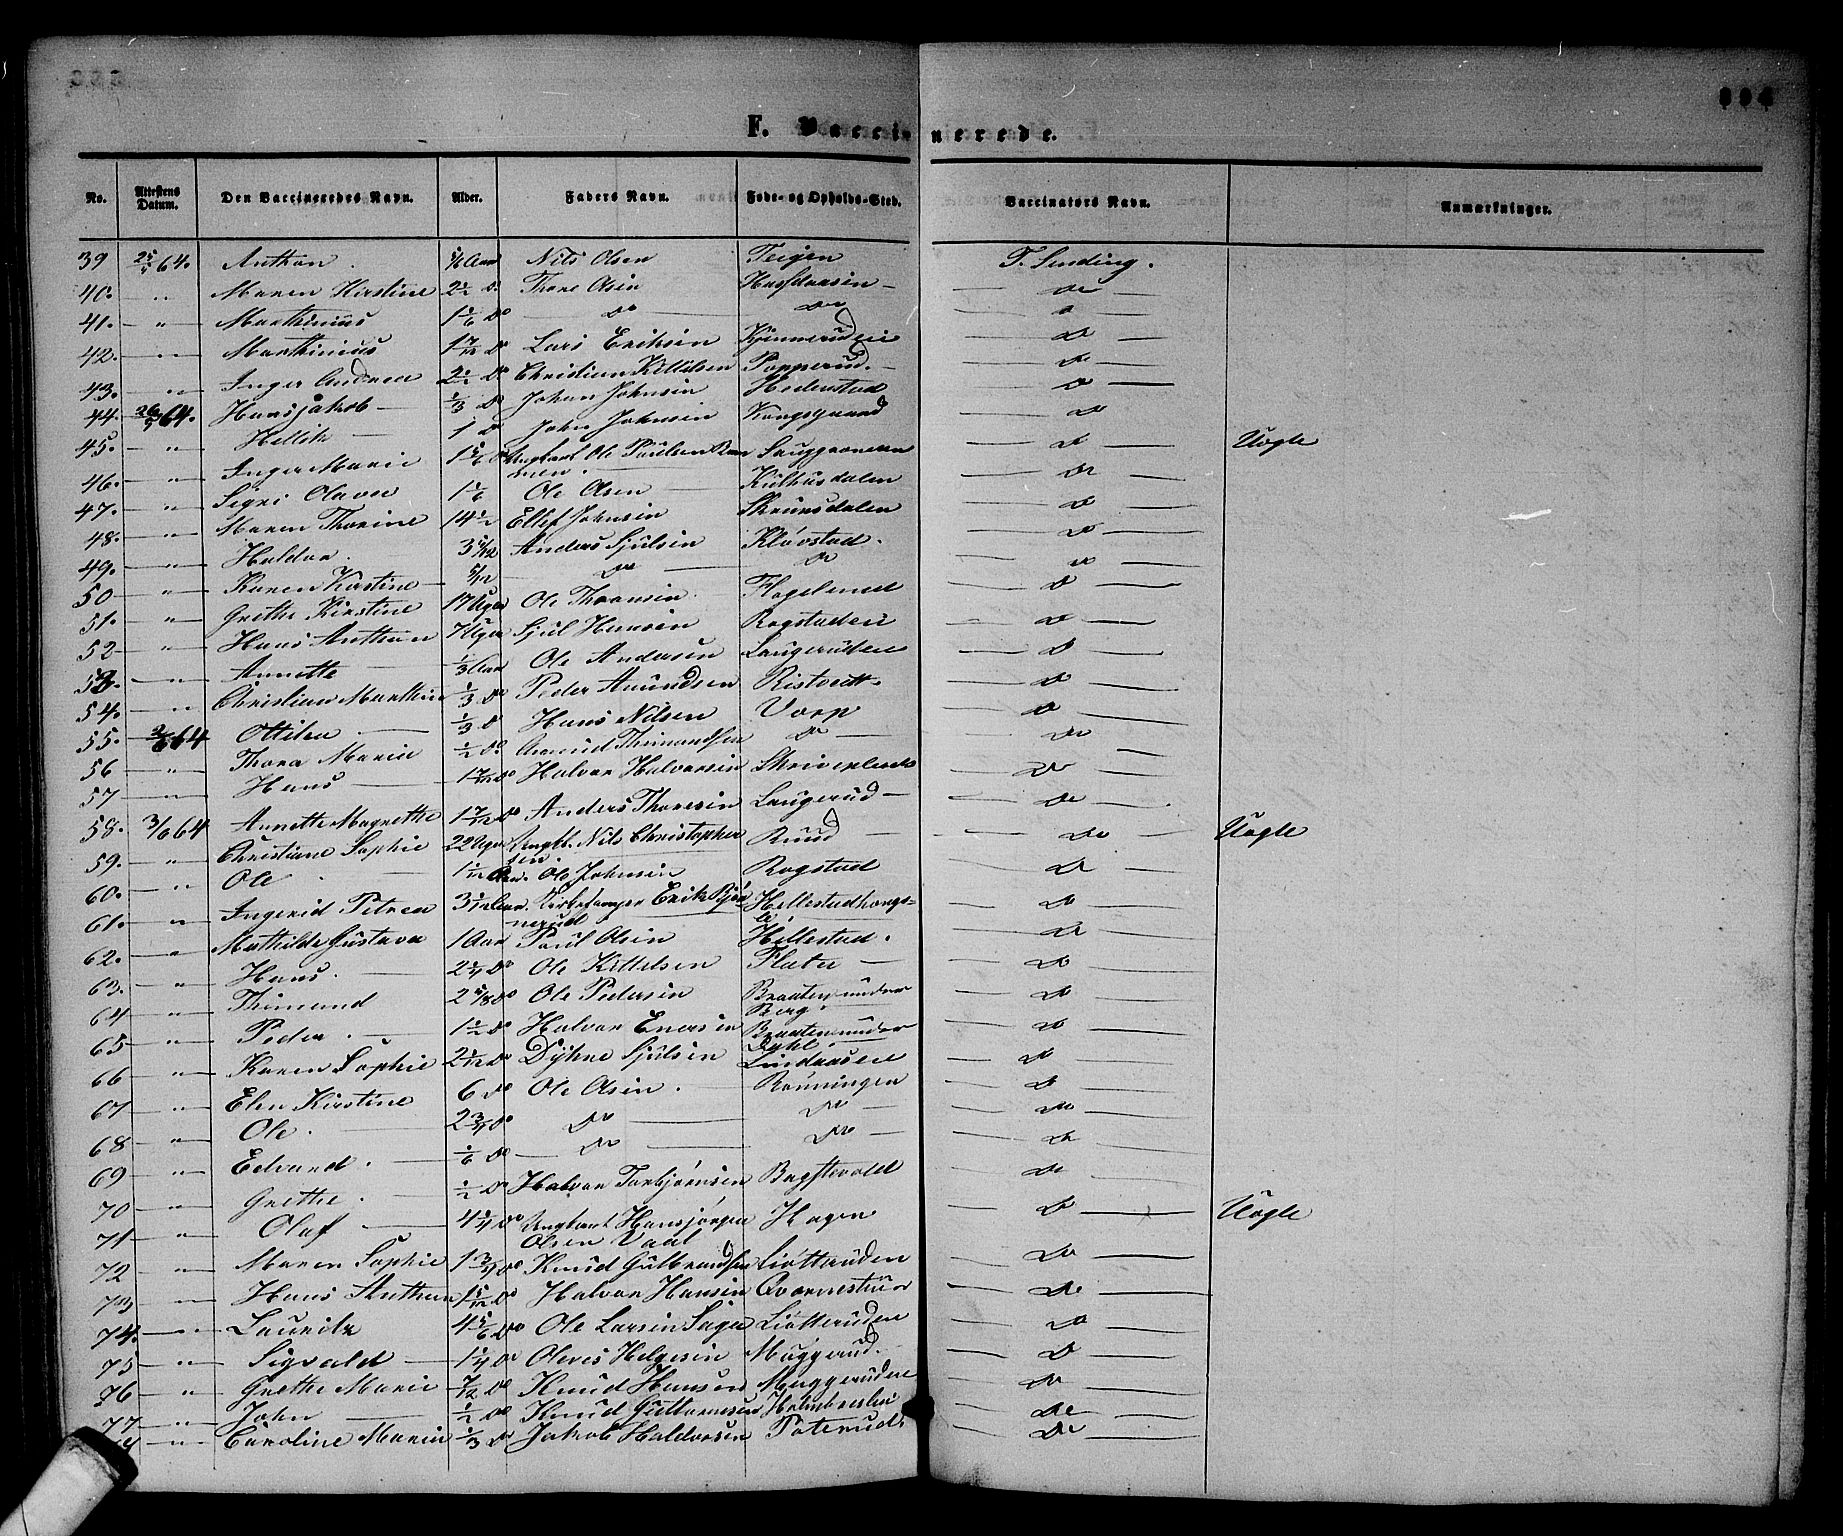 F. Vaccinerede.
No. Attestens Datum. Den Vaccineredes Navn. Alder. Faders Navn. Føde- og Opholds-Sted. Vaccinators Navn. Anmærkninger.
39 25/5 64. Anthon. Nils Olsen Teigen T. Sinding.
40. " Maren Kirstine 2 1/2 do. Thore Olsen do
41. — " — Marthinius 1 1/6 do — do — do do
42. " Marthinius 1 7/12 do Lars Eriksen do
43. " Inger Andrea 2 1/2 do Christian Kittelsen Popperud. do
44. 26/5 64. Hansjakob 1/3 do Johan Johnsen Hedenstad do
45. " Hellik 1 do John Johnsen Kongsgaard do
46. " Inger Marie 1 5/6 do Ungkarl Ole Paulsen do Uægte
47. " Sigri Olava 1 1/6 Ole Olsen Kulhusdalen do
48. " Maren Thorine 14 1/2 Ellef Johnsen Skruvsdalen do
49. " Haldor. 3 5/12 Anders Sjulsen Kløvstad. do
50 " Karen Kirstine 5/12 do do do
51. " Grethe Kirstine 17 Uger Ole Thoansen do
52 " Hans Anthon 7 Uger Sjul Hansen Rogstadeie do
53. " Annette 1/3 Aar Ole Andersen Laugeruden do
54. " Christian Marthin 1/3 do Peder Amundsen Ristvedt. do
55. 2/6 64 Ottilia 1/3 do Hans Nilsen Vorp do
56 " Thora Maria 1/2 do. Amund Thimandsen do do
57 " Hans 1 7/12 do Halvor Halvorsen do
58. 3/6 64 Annette Magrethe 1 7/12 do Anders Thoresen Laugerud do
59. " Christiane Sophie 22 Uger Ungk. Nils Christophersen. Ruud do Uægte
60. " Ole 1/12 Aar. Ole Johnsen Rogstad do
61. " Ingerid Petrea 3 1/12 Aar. Kirkesanger Erik Bjørnerud do
62. " Mathilde Gustava 1 Aar Paul Olsen Hellestad. do
63. " Hans. 2 3/4 do Ole Kittelsen Flata do
64 " Thimand 2 do Ole Pedersen Braaten under Berg. do
65 " Peder. 1 1/2 do Halvor Enersen Braaten under Dahl. do
66 " Karen Sophie 2 1/12 do Sjulsen Lindaasen do
67 " Elen Kirstine 6 do Ole Olsen. Rønningen do
68 " Ole. 2 3/4 do do do do
69 " Edvard. 1/6 do do do do
70 " Grethe. 1/2 do Halvor Torbjørnsen do
71 " Olaf 4 3/4 do Ungkarl Hansjørgen Olsen Vaal Hagen do Uægte
72 " Maren Sophie 1 3/4 do Knud Gulbrandsen Liøtteruden do
73 " Hans Anthon 1 5/12 do Halvor Hansen Qværnestu do
74. " Lauritz 4 5/6 do Ole Larsen Saga Liøtteruden do
75 " Sigvald 1 1/4 do Olves Helgesen Muggerud. do
76 " Grethe Marie 7/12 do Knud Hansen Muggeruden do
77 " John 1/2 do Knud Guttormsen do
" Caroline Maria 1/3 do Jakob Haldorsen do